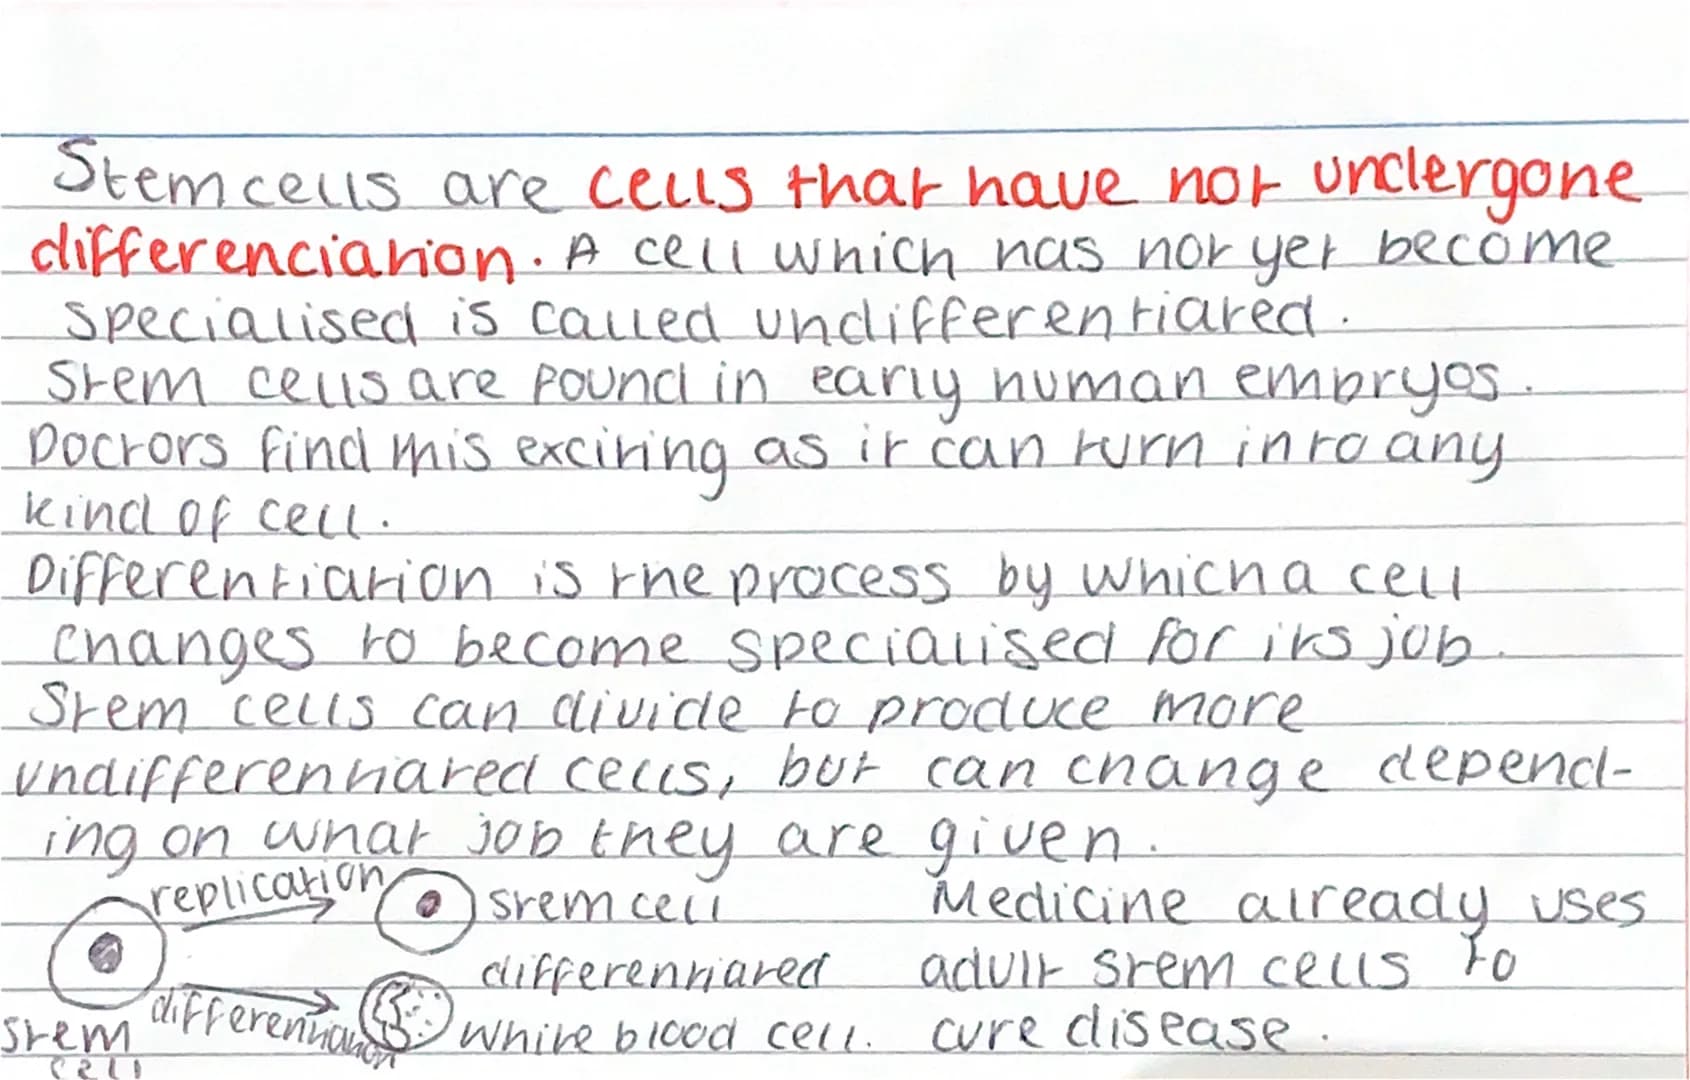 Stem cells are cells that have not undergone
differenciation. A cell which has not yet become
specialised is called undifferentiated.
Stem cells are found in early human embryos.
Doctors find this exciting as it can turn into any
kind of cell.
Differentiation is the process by which a cell
changes to become specialised for its job.
Stem cells can divide to produce more
undifferentiated cells, but can change depend-
ing on what job they are given.
replication
stem cell
differentiation
stem cell
differentiated
white blood cell.
Medicine already uses
adult stem cells to
cure disease.